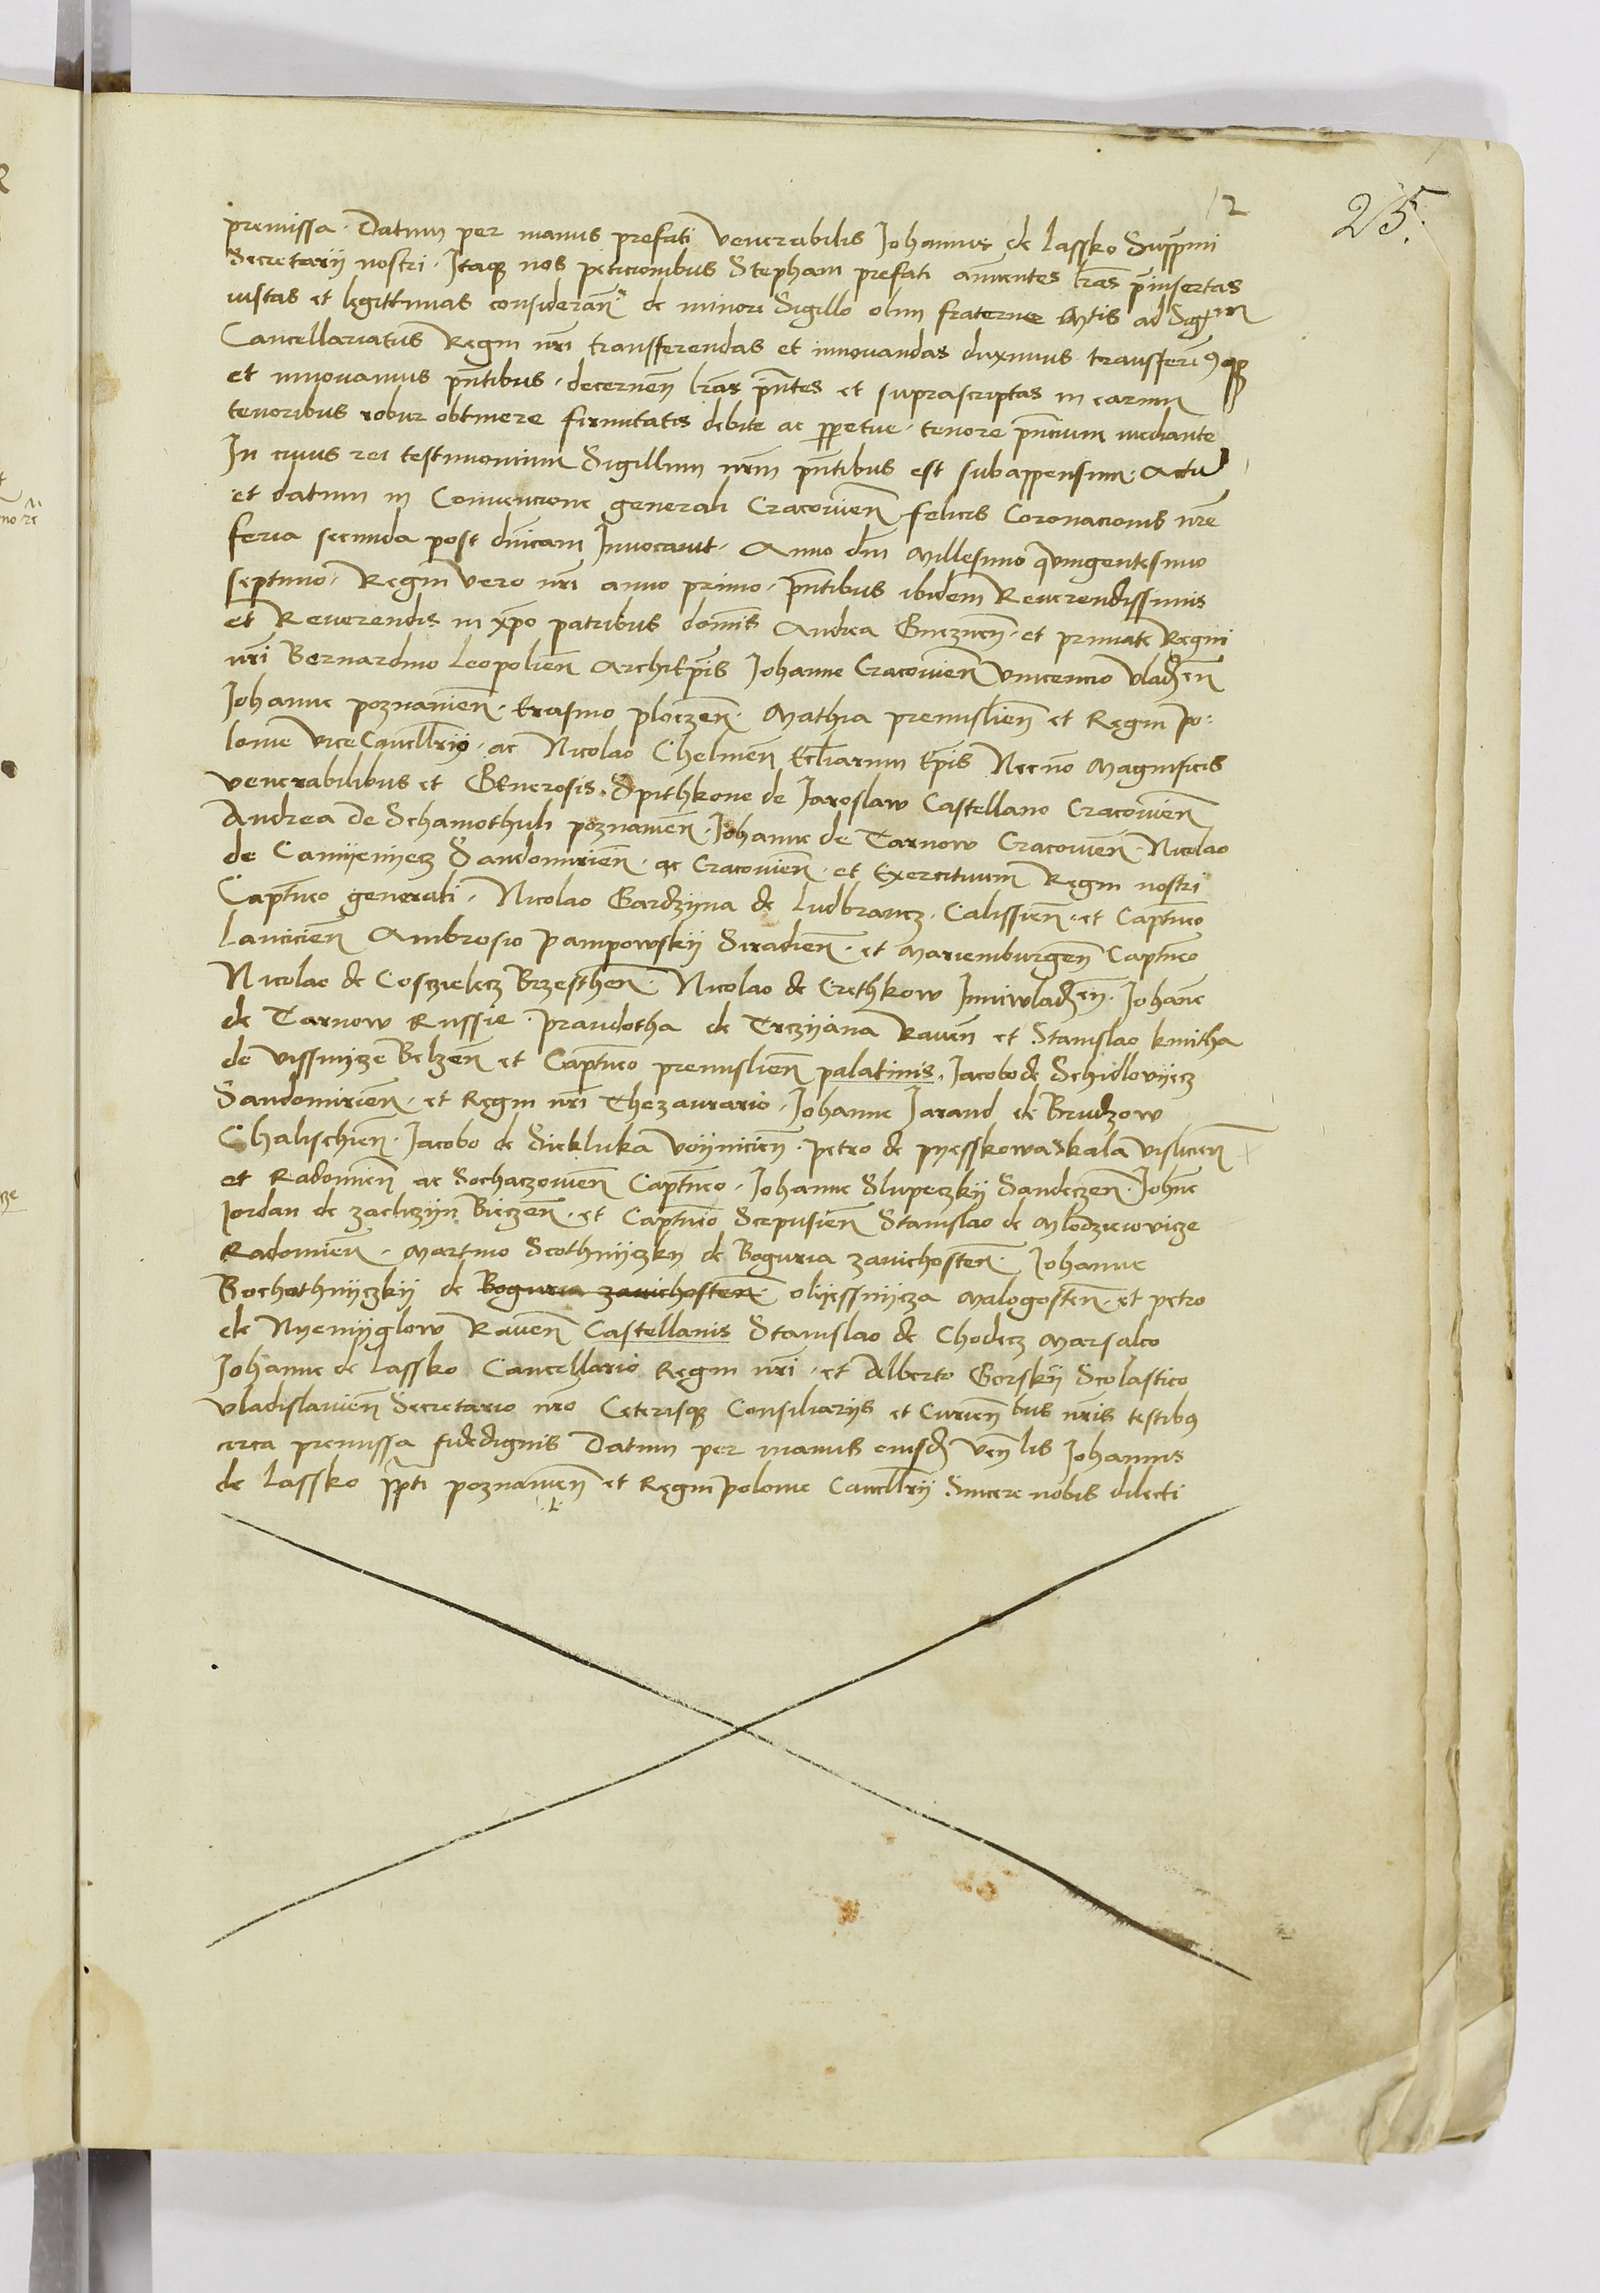 12
25.
premissa. Datum per manus prefati Venerabilis Johannis de Lassko Supremi
Secretarij nostri. Itaque nos peticionibus Stephani prefati annuentes lras preinsertas
iustas et legittimas consideran. de minori Sigillo olim fraterne Mtis ad Sigm
Cancellariatus Regni nri transferendas et innovandas duximus transferimusque
et innovamus pntibus. decernen lras pntes et suprascriptas in earum
tenoribus robur obtinere firmitatis debite ac perpetue. tenore pncium mediante
In cuius rei testimonium Sigillum nrm pntibus est subappensum. Actu
et datum in Convencione generali Cracovien felicis Coronacionis nre
feria secunda post dnicam Invocavit. Anno dni Millesimo quingentesimo
septimo. Regni vero nri anno primo. pntibus ibidem Reverendissimis
et Reverendis in xpo patribus domis Andrea Gneznen. et primate Regni
nri Bernardino Leopolien Archiepis Johanne Cracovien Vincencio Vladien
Johanne poznanien. Erasmo ploczen. Mathia premislien et Regni Po:
lonie ViceCancllrijo. ac Nicolao Chelmen Eccliarum Epis Necno Magnificis
Venerabilibus et Generosis. Spithkone de Jaroslaw Castellano Cracovien
Andrea de Schamothuli poznanien. Johanne de Tarnow Cracovien. Nicolao
de Camyenyecz Sandomirien. ac Cracovien. et Exercituum Regni nostri
Captneo generali. Nicolao Gardzyna de Ludbrancz. Calissien. et Captneo
Lancicien Ambrosio Pampowskij Siradien. et Mariemburgen Captneo
Nicolao de Cosczielecz Brzesthen. Nicolao de Crethkow Juniwladien. Johanne
de Tarnow Russie. prandotha de Trczyana Raven et Stanislao kmitha
de Vissnijcze Belzen et Captneo premislien palatinis. Jacobo de Schidlovijecz
Sandomirien. et Regni nri Thezaurario. Johanne Jarand de Brudzow
Chalischien. Jacobo de Siekluka Voijnicien. petro de pyesskowa Skala Vislicien
et Radomien ac Sochaczovien Captneo. Johanne Slupeczkij Sandeczen. Johne
Jordan de zaclicziin Bieczen. et Captneo Scepusien Stanislao de Mlodzieiovicze
Radomien. Martino Scothnyczkij de Boguria zavichosten. Johanne
Bochothnijczkij de Boguria zavichosten. olijessnijcza Malogosten. et petro
de Nyemyglow Raven Castellanis Stanislao de Chodecz Marsalco
Johanne de Lassko Cancellario Regni nri. et Alberto Gorskij Scolastico
Vladislavien Secretario nro Ceterisque Consiliarijs et Curien bus nris testibus
circa premissa fidedignis Datum per manus eiusd Venlis Johannis
de Lassko ppti poznanien et Regni Polonie Cancllrij Sincere nobis dilecti